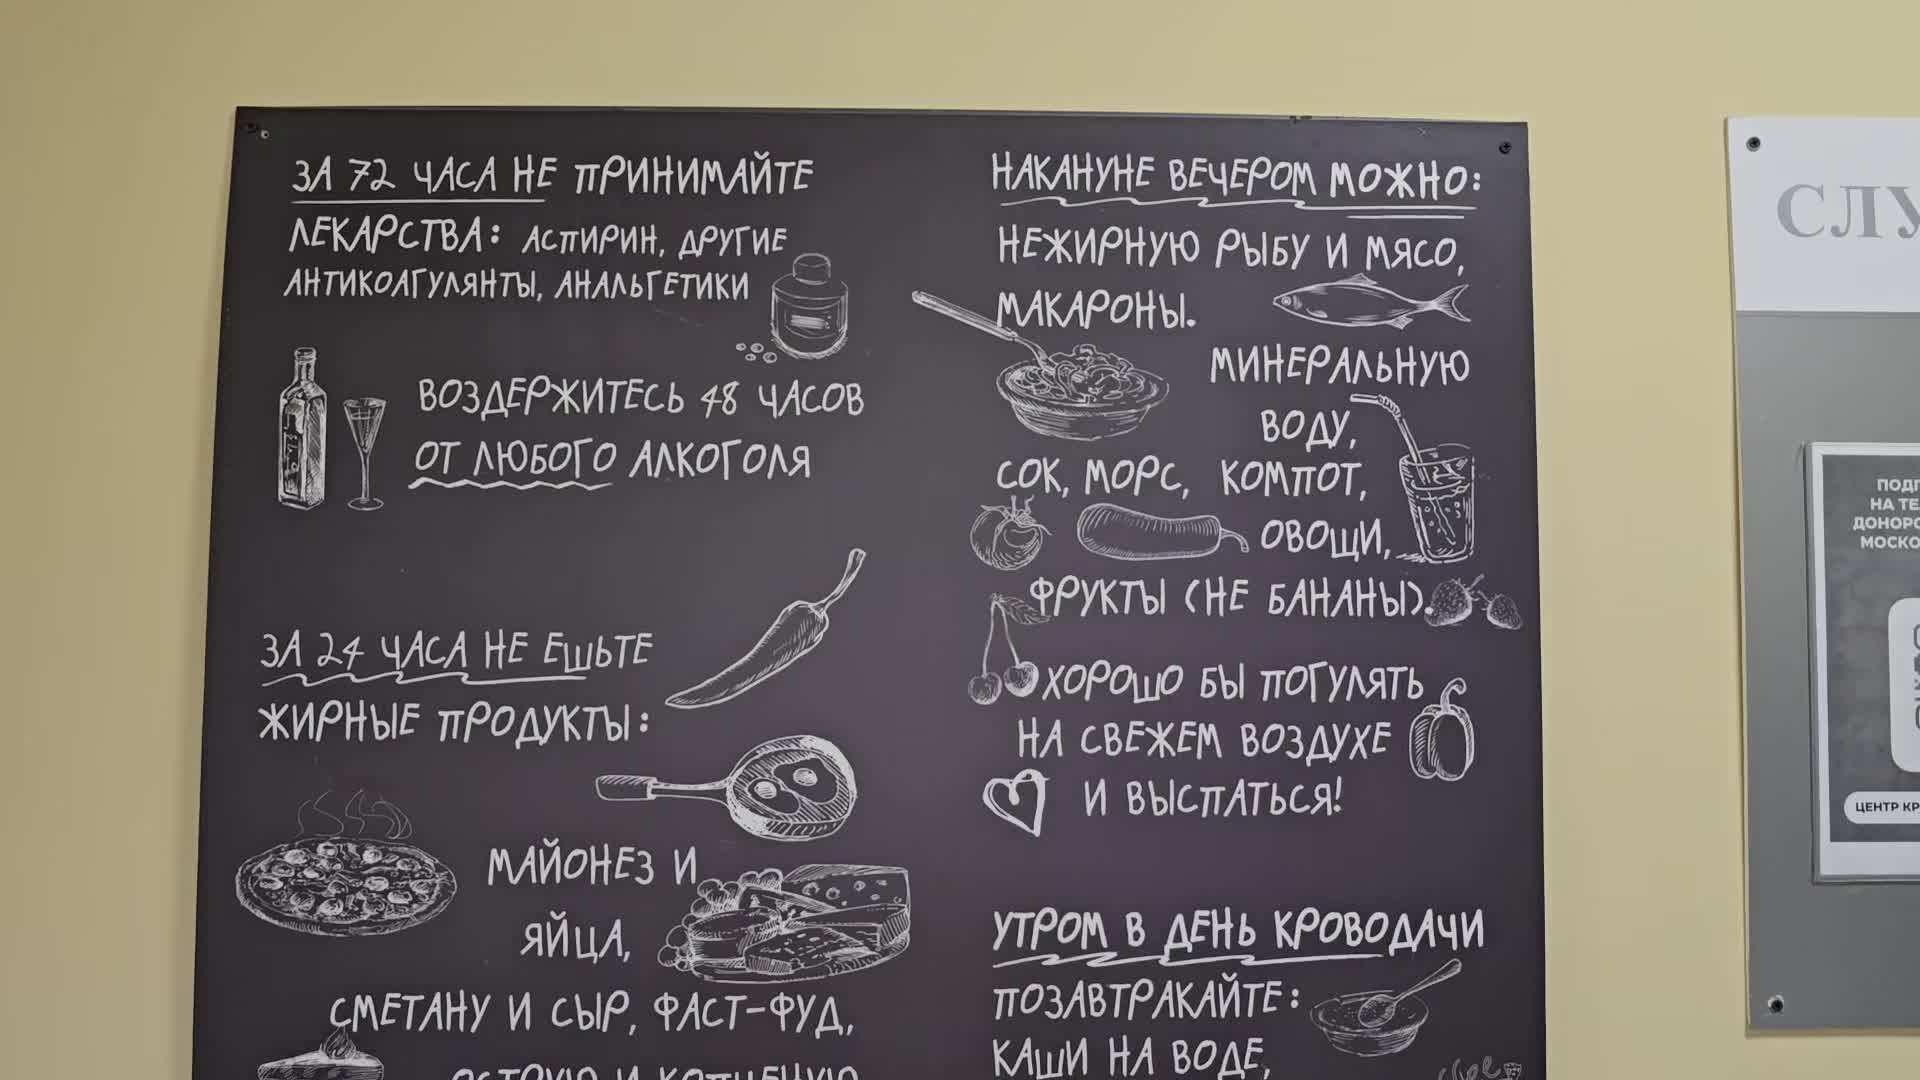 ЗА 72 ЧАСА НЕ ПРИНИМАЙТЕ
ЛЕКАРСТВА: АСПИРИН, ДРУГИЕ
АНТИКОАГУЛЯНТЫ, АНАЛЬГЕТИКИ
ВОЗДЕРЖИТЕСЬ 48 ЧАСОВ
ОТ ЛЮБОГО АЛКОГОЛЯ
ЗА 24 ЧАСА НЕ ЕШЬТЕ
ЖИРНЫЕ ПРОДУКТЫ:
МАЙОНЕЗ И
ЯЙЦА,
СМЕТАНУ И СЫР, ФАСТ-ФУД,
ОСТРУЮ И КОПЧЕНУЮ
НАКАНУНЕ ВЕЧЕРОМ МОЖНО:
НЕЖИРНУЮ РЫБУ И МЯСО,
МАКАРОНЫ.
МИНЕРАЛЬНУЮ
ВОДУ,
СОК, МОРС, КОМПОТ,
ОВОЩИ,
ФРУКТЫ (НЕ БАНАНЫ).
ХОРОШО БЫ ПОГУЛЯТЬ
НА СВЕЖЕМ ВОЗДУХЕ
И ВЫСПАТЬСЯ!
УТРОМ В ДЕНЬ КРОВОДАЧИ
ПОЗАВТРАКАЙТЕ:
КАШИ НА ВОДЕ,
СЛУ
ПОДП
НА ТЕЛ
ДОНОРС
МОСКО
ЦЕНТР КР